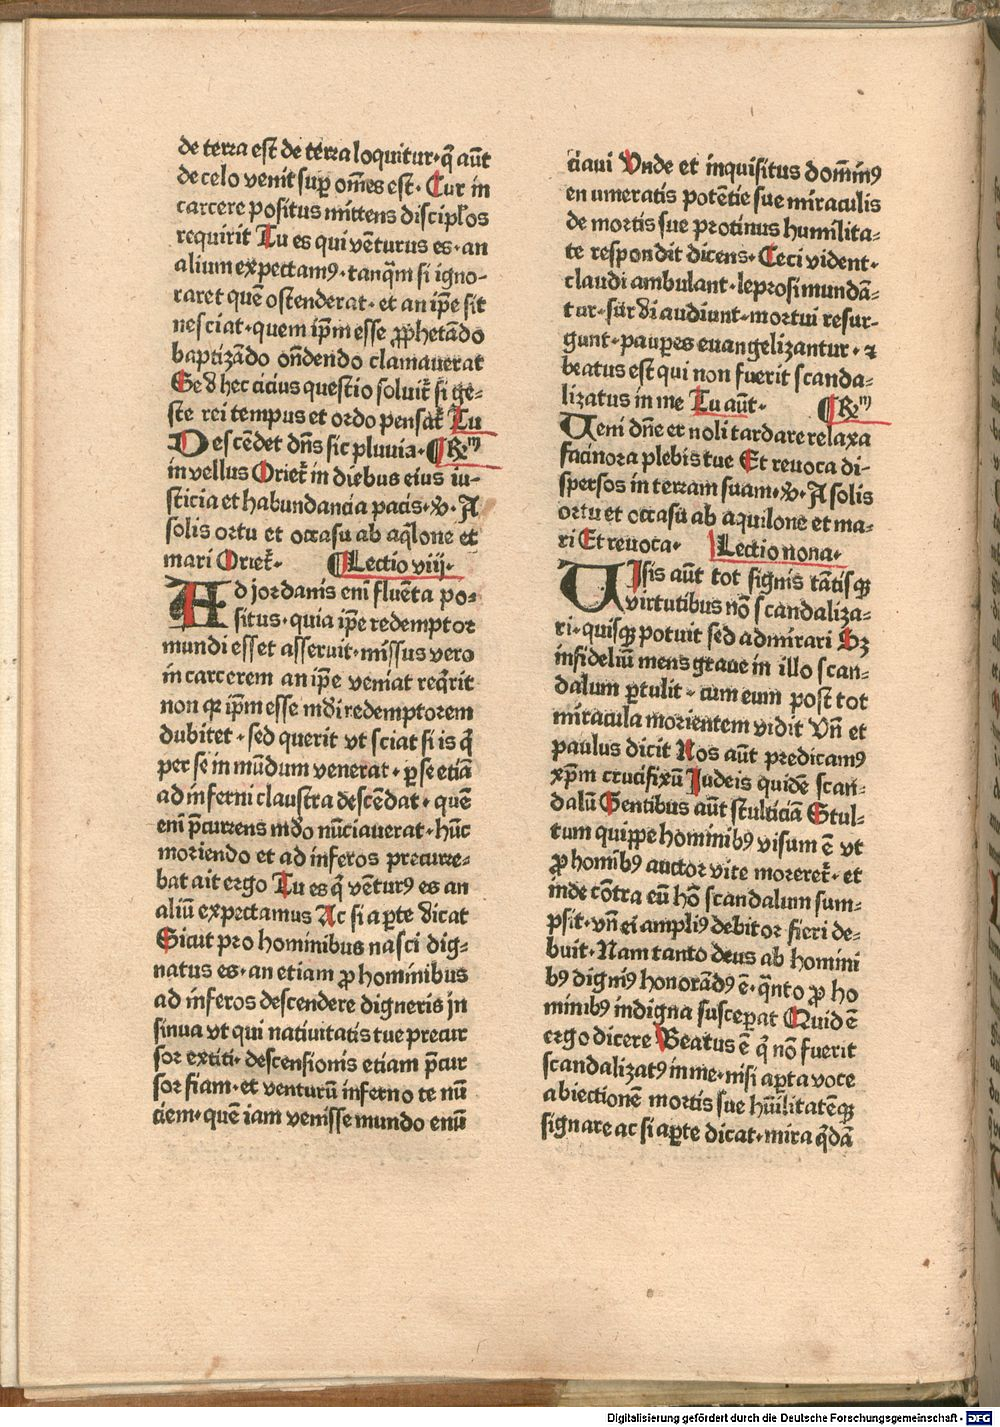 de terra est de terra loquitur· q̄ aūt
de celo venit sup̱ om̄es est· Cur in
carcere positus mittens discipl'os
requirit Tu es qui vēturus es· an
alium expectamꝰ· tanq̄m si igno-
raret quē ostenderat· et an ip̄e sit
nesciat· quem ip̄m esse ꝓphetādo
baptizādo on̄dendo clamauerat
Sed hec cicius questio soluit᷑ si ge-
ste rei tempus et ordo pensat᷑ Tu
Descēdet dn̄s sic pluuia· Rm̄
in vellus Oriet᷑ in diebus eius iu-
sticia et habundancia pacis· v̄· A
solis ortu et occasu ab aq̇lone et
mari Oriet᷑· Lectio viij·
Ad jordanis eni fluēta po-
situs· quia ip̄e redemptor
mundi esset asseruit· missus vero
in carcerem an ip̄e veniat req̇rit
non qꝛ ip̄m esse mūdi redemptorem
dubitet· sed querit vt sciat si is q̄
per se in mūdum venerat· ꝑ se etiā
ad inferni claustra descēdat· quē
eni p̄currens mūdo nūciauerat· hūc
moriendo et ad inferos precurre-
bat ait ergo Tu es q̇ vēturꝰ es an
aliū expectamus Ac si aꝑte dicat
Sicut pro hominibus nasci dig-
natus es· an etiam ꝓ hominibus
ad inferos descendere digneris jn
sinua vt qui natiuitatis tue precur
sor extiti· descensionis etiam p̄cur
sor fiam· et venturū inferno te nū
ciem· quē iam venisse mundo enū
ciaui Vnde et inquisitus dom̄inꝰ
en umeratis potētie sue miraculis
de mortis sue protinus humilita-
te respondit dicens· Ceci vident·
claudi ambulant· leprosi mundā-
tur· surdi audiunt· mortui resur-
gunt· pauꝑes euangelizantur· ⁊
beatus est qui non fuerit scanda-
lizatus in me Tu aūt· Rm̄
Ueni dn̄e et noli tardare relaxa
facinora plebis tue Et reuoca di-
spersos in terram suam· v̄· A solis
ortu et occasu ab aquilone et ma-
ri Et reuoca· Lectio nona·
UIsis aūt tot signis tātisqꝫ
virtutibus nō scandaliza-
ri· quisqꝫ potuit sed admirari Sꝫ
infideliū mens graue in illo scan-
dalum ꝑtulit· cum eum post tot
miracula morientem vidit Vn̄ et
paulus dicit Nos aūt predicamꝰ
xp̄m crucifixū Judeis quidē scan-
dalū Gentibus aūt stulticiā Stul-
tum quippe hominibꝰ visum ē vt
ꝓ homibꝰ auctor vite moreret᷑· et
inde cōtra eū hō scandalum sum-
psit· vn̄ ei ampliꝰ debitor fieri de-
buit· Nam tanto deus ab homini
bꝰ digniꝰ honorādꝰ ē· q̄nto ꝓ ho
minibꝰ indigna susceꝑat Quid ē
ergo dicere Beatus ē q̇ nō fuerit
scandalizatꝰ in me· nisi aꝑta voce
abiectionē mortis sue hūilitatēqꝫ
signare ac si aꝑte dicat· mira q̇dā
Digitalisierung gefördert durch die Deutsche Forschungsgemeinschaft - DFG